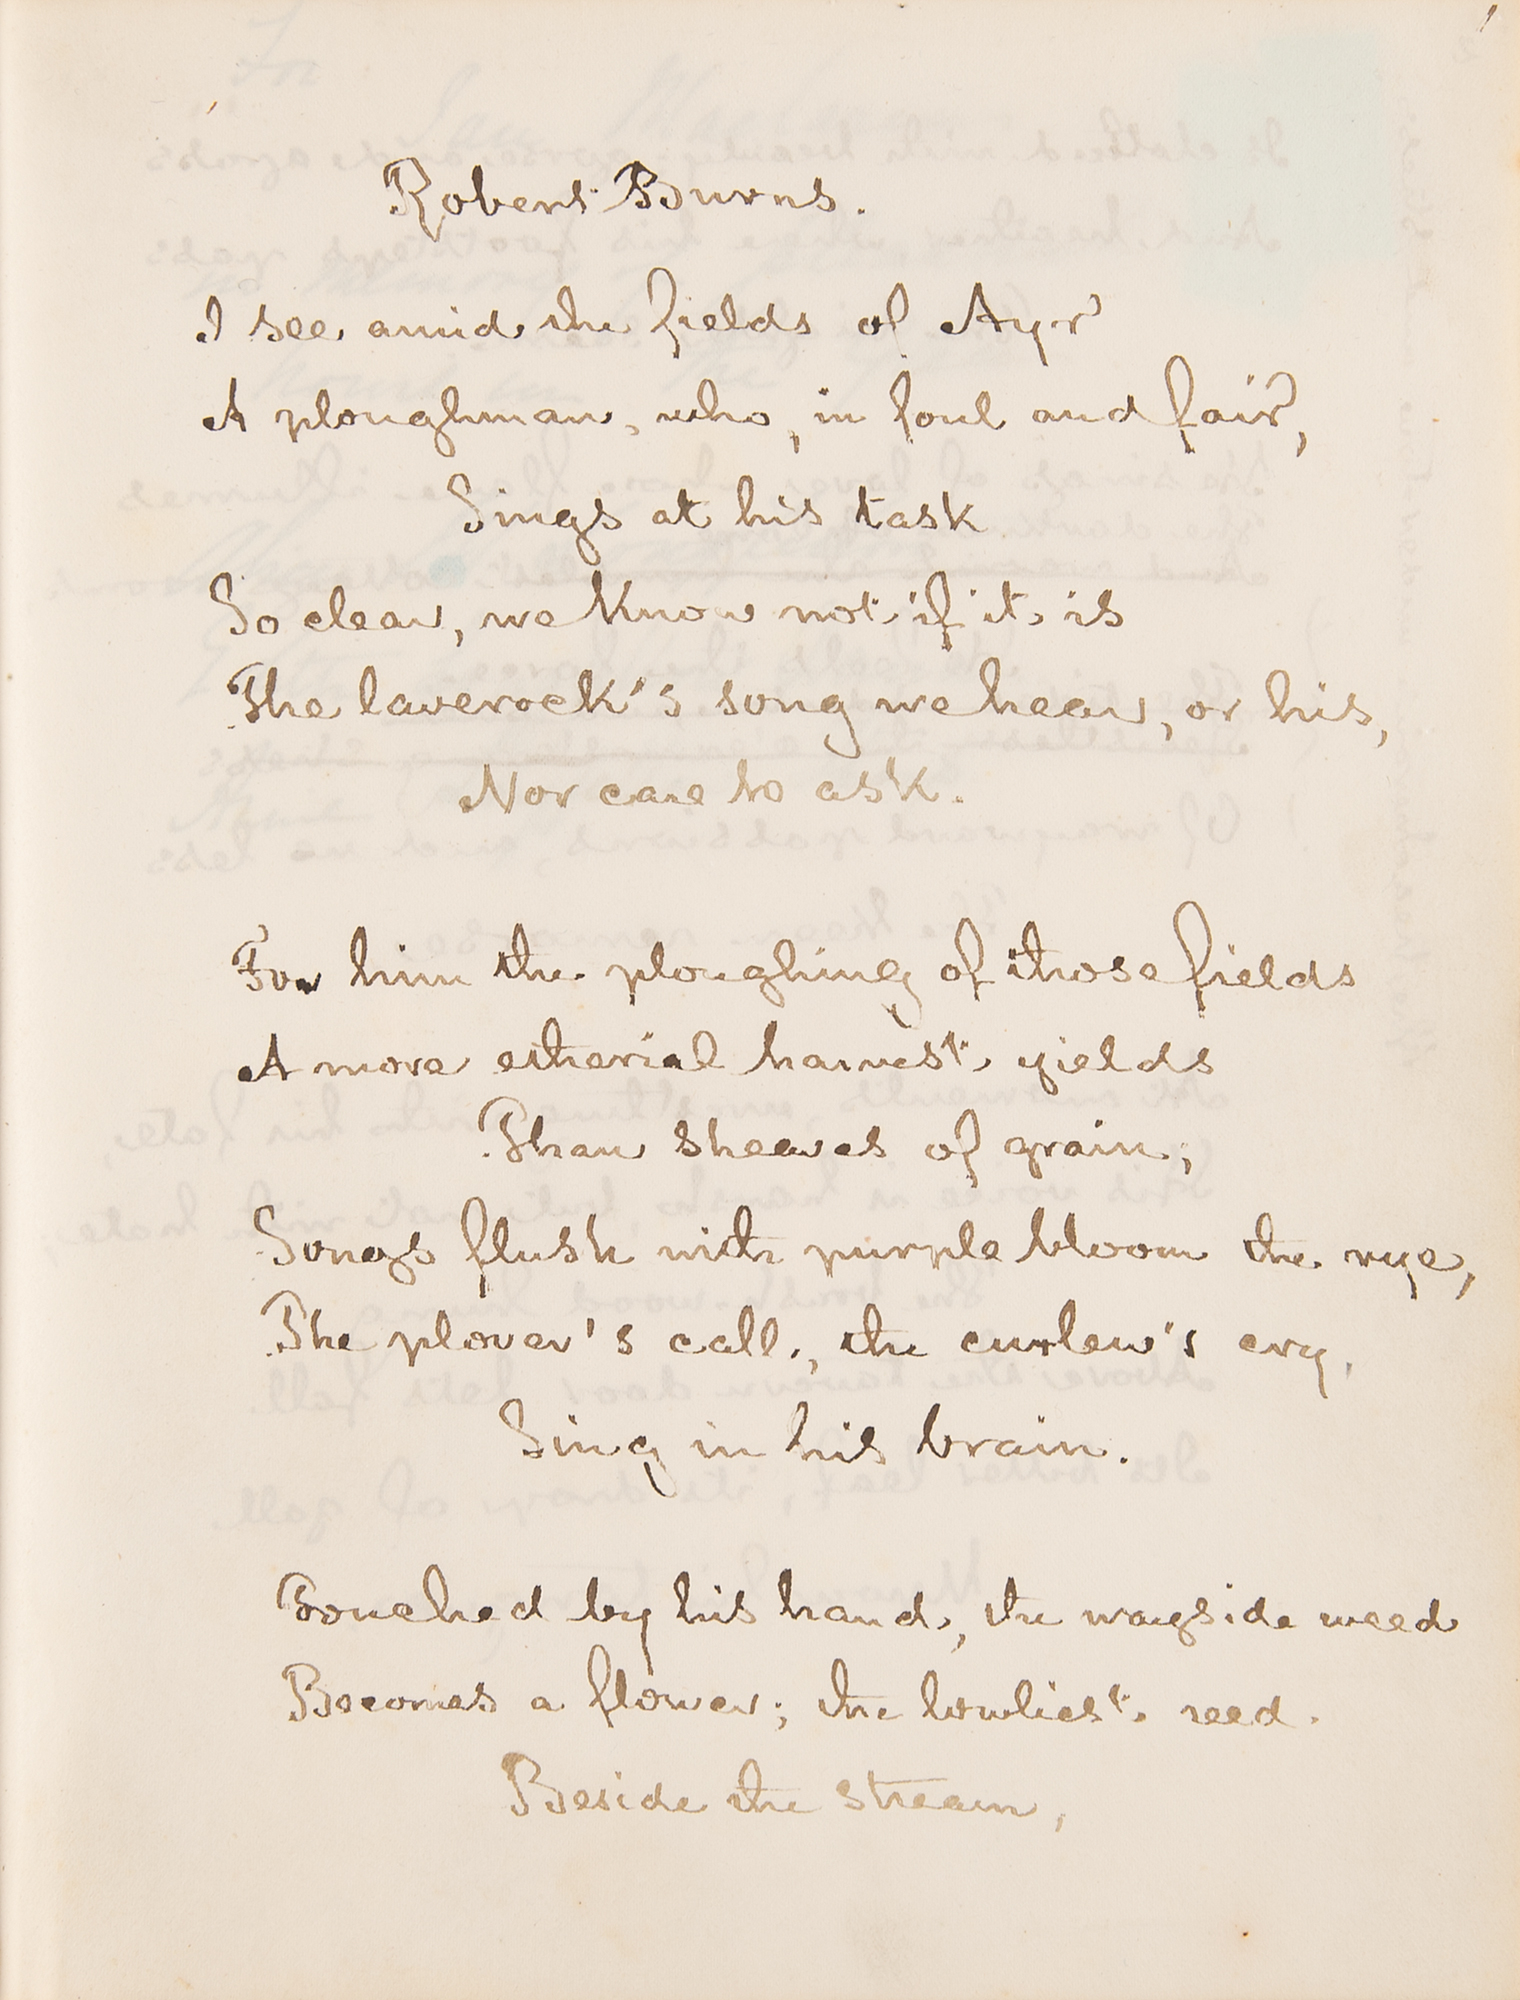 Robert Burns.
I see amid the fields of Ayr
A ploughman, who, in foul and fair,
Sings at his task
So clear, we know not if it is
The laverock's song we hear, or his,
Nor care to ask.
For him the ploughing of those fields
A more etherial harvest yields
Than sheaves of grain;
Songs flush with purple bloom the rye,
The plover's call, the curlew's cry,
Sing in his brain.
Touched by his hand, the wayside weed
Becomes a flower; the lowliest reed
Beside the stream,